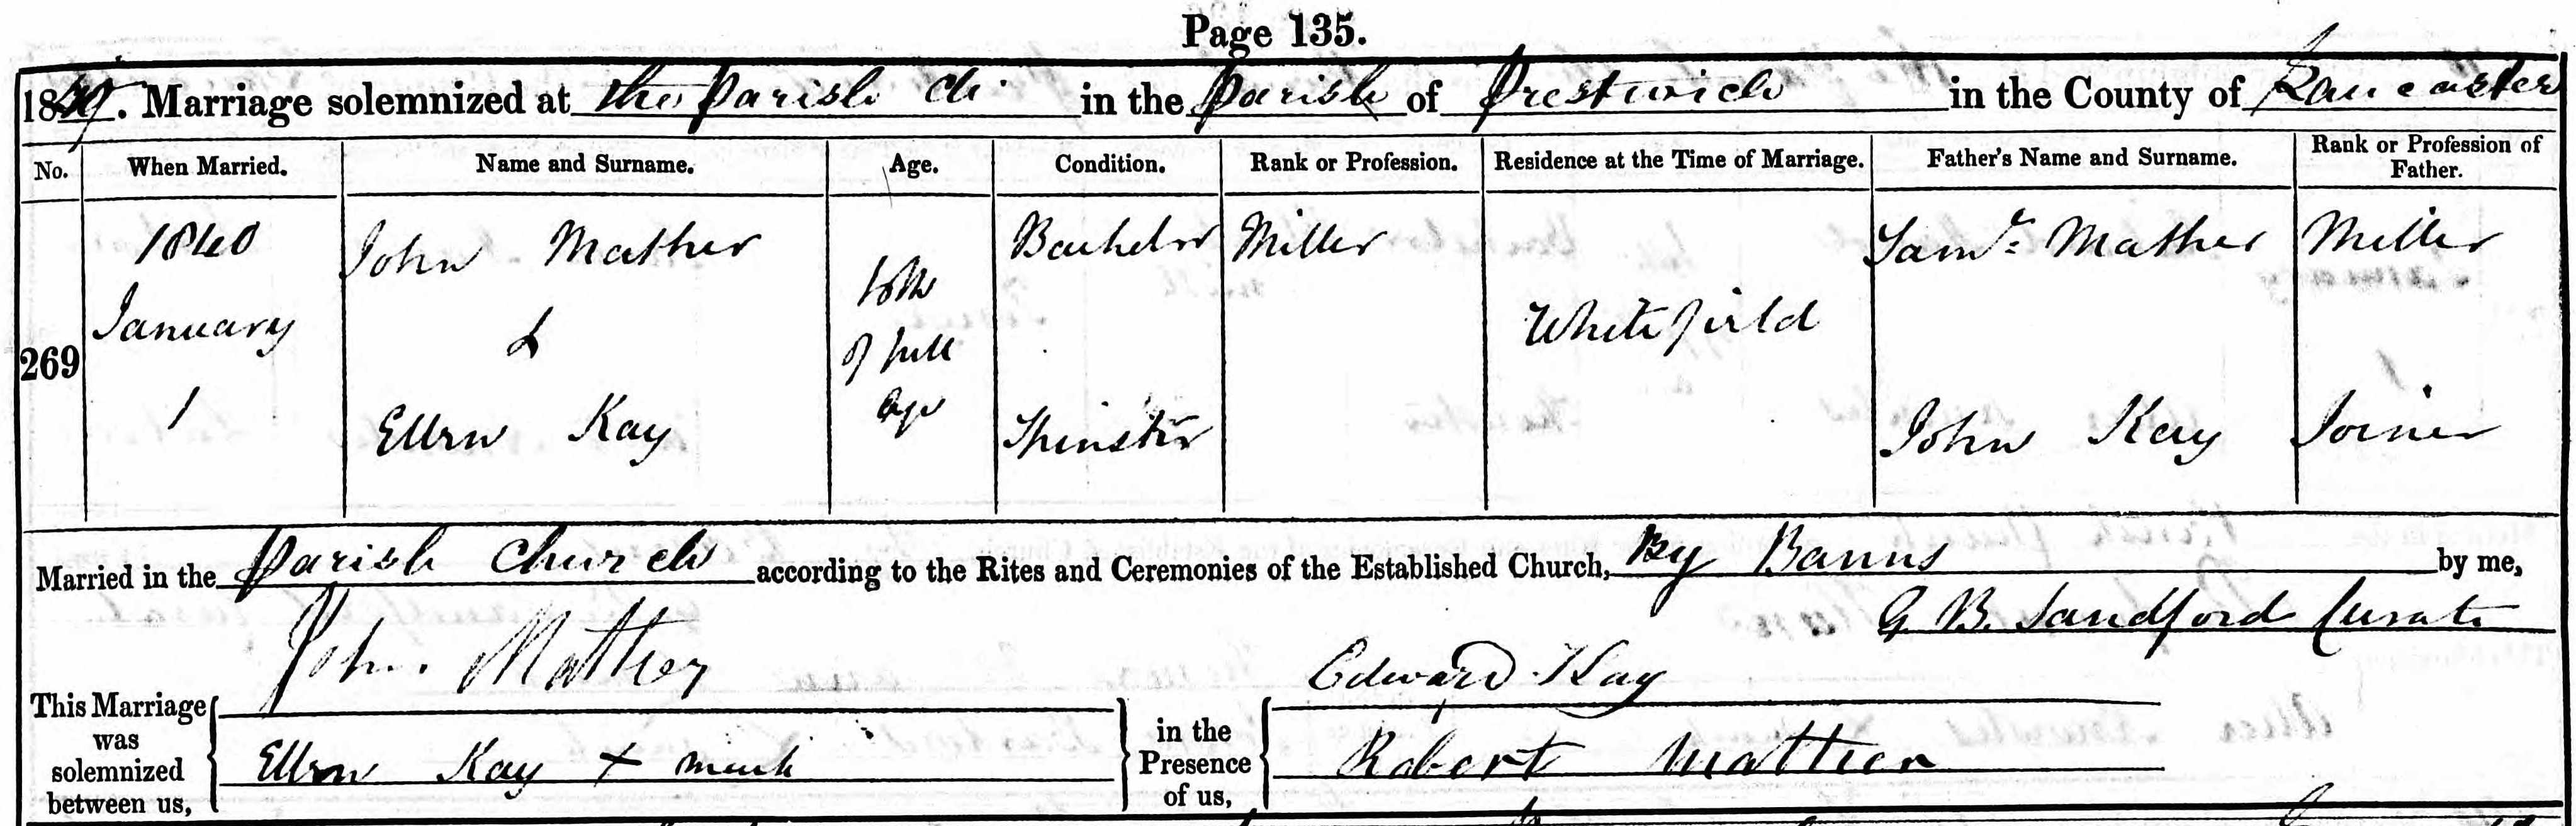 Page 135.
1839. Marriage solemnized at the Parish Ch. in the Parish of Prestwich in the County of Lancaster
No. When Married. Name and Surname. Age. Condition. Rank or Profession. Residence at the Time of Marriage. Father's Name and Surname. Rank or Profession of Father.
1840 John Mather Bachelor Miller Saml. Mather Miller
both
January & of full Whitefield
269
1 Ellen Kay age Spinster John Kay Joiner
Married in the Parish Church according to the Rites and Ceremonies of the Established Church, By Banns by me,
G. B. Sandford Curate
This Marriage was solemnized between us,
John Mather
Ellen Kay + mark
in the Presence of us,
Edward Kay
Robert Mather